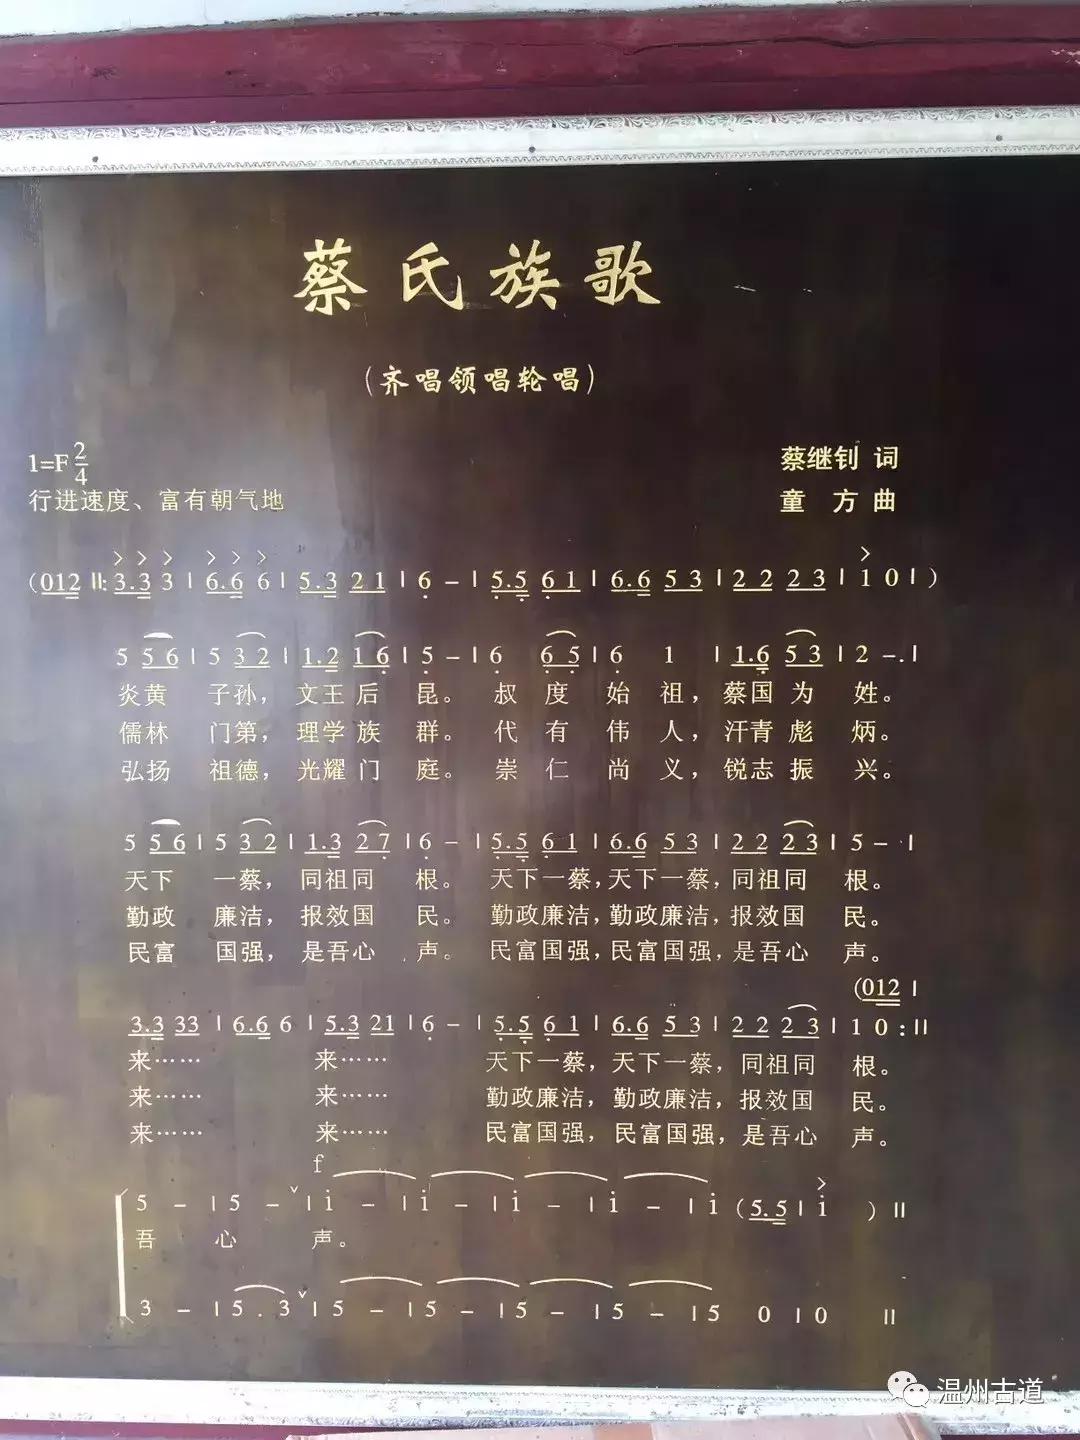 蔡氏族歌
(齐唱领唱轮唱)
1=F 2/4
蔡继钊 词
行进速度、富有朝气地
童 方 曲
(012 ||: 3.3 3 | 6.6 6 | 5.3 21 | 6 - | 5.5 61 | 6.6 53 | 22 23 | 1 0 | )
5 56 | 5 32 | 1.2 16 | 5 - | 6 65 | 6 1 | 1.6 53 | 2 -. |
炎黄 子孙, 文王后 昆。 叔 度 始 祖, 蔡国为 姓。
儒林 门第, 理学族 群。 代 有 伟 人, 汗青彪 炳。
弘扬 祖德, 光耀门 庭。 崇 仁 尚 义, 锐志振 兴。
5 56 | 5 32 | 1.3 27 | 6 - | 5.5 61 | 6.6 53 | 22 23 | 5 - |
天下 一蔡, 同祖同 根。 天下一蔡, 天下一蔡, 同祖同 根。
勤政 廉洁, 报效国 民。 勤政廉洁, 勤政廉洁, 报效国 民。
民富 国强, 是吾心 声。 民富国强, 民富国强, 是吾心 声。
(012 |
3.3 33 | 6.6 6 | 5.3 21 | 6 - | 5.5 61 | 6.6 53 | 22 23 | 1 0 :||
来…… 来…… 天下一蔡, 天下一蔡, 同祖同 根。
来…… 来…… 勤政廉洁, 勤政廉洁, 报效国 民。
来…… 来…… 民富国强, 民富国强, 是吾心 声。
f
5 - | 5 - | i - | i - | i - | i - | i (5.5 | i ) ||
吾 心 声。
3 - | 5.3 | 5 - | 5 - | 5 - | 5 - | 5 0 | 0 ||
温州古道